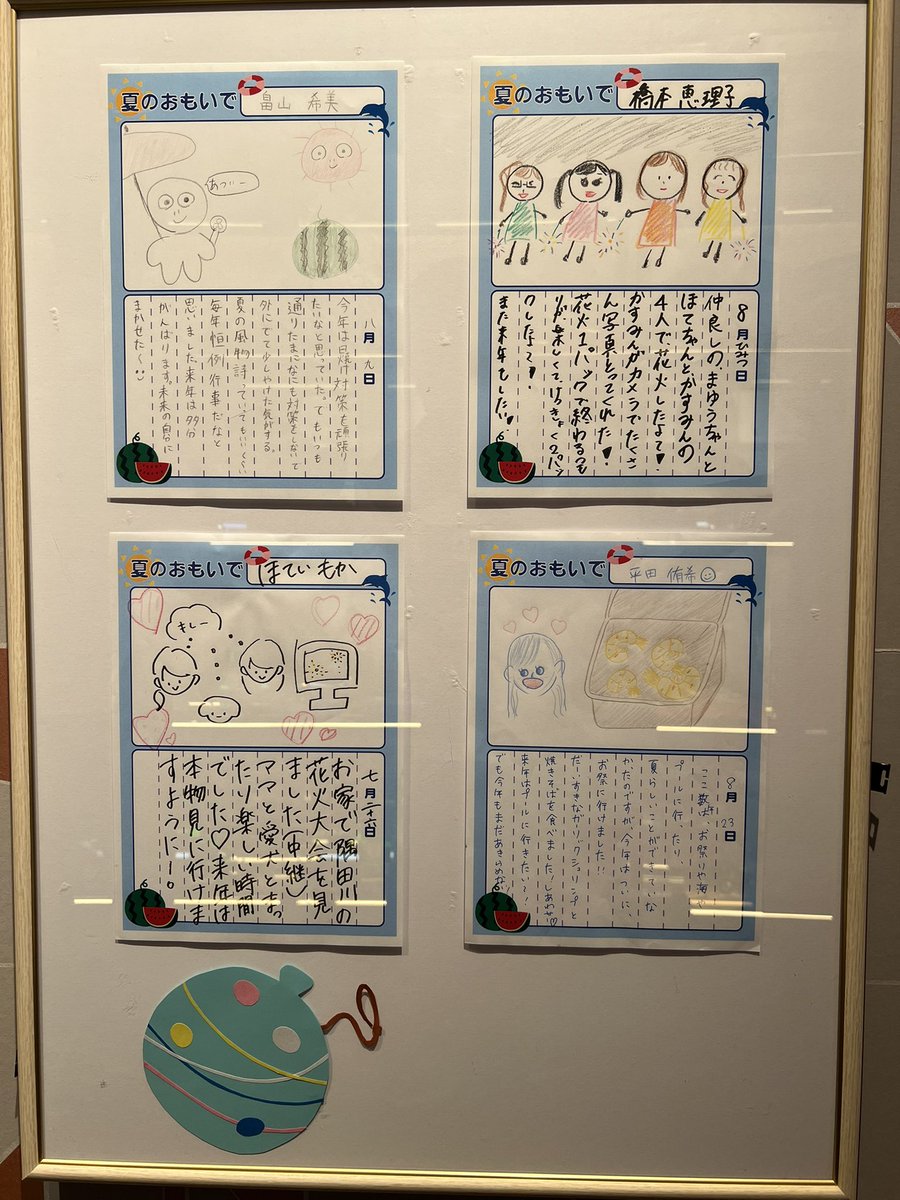 夏のおもいで
畠山 希美
あづいー
八月 九日
今年は日焼け対策も頑張り
たいなと思っていた。でもいつも
通りたまになにも対策をしないで
外にでて少しやけた気がする。
夏の風物詩っていってもいいくらい
毎年恒例行事だなと
思いました。来年は多分
がんばります。未来の自分に
まかせた〜
夏のおもいで
橋本 恵理子
8月ひみつ日
仲良しの、まゆうちゃんと
ほてちゃんとかすみんの
4人で、花火したよて♥
かすみんがカメラでたくさ
ん写真とってくれた♥。
花火1パックで終わるつも
りが楽しくて、けっきょく2パッ
クしたよて♥。
また来年もしたい♥
夏のおもいで
ほてい もか
キレー
七月 二十六日
お家で隅田川の
花火大会を見
ました(中継)
ママと愛犬とまっ
たり楽しい時間
でした♡来年は
本物見に行けま
すように!。
夏のおもいで
平田 侑希☺
8月 23日
ここ数年、お祭りや海や
プールに行ったり、
夏らしいことができていな
かったのですが、今年はついに、
お祭に行けました!!
だーいすきなガーリックシュリンプと
焼きそばを食べました、しあわせ♡
来年はプールに行きたい〜!
でも今年もまだあきらめない!